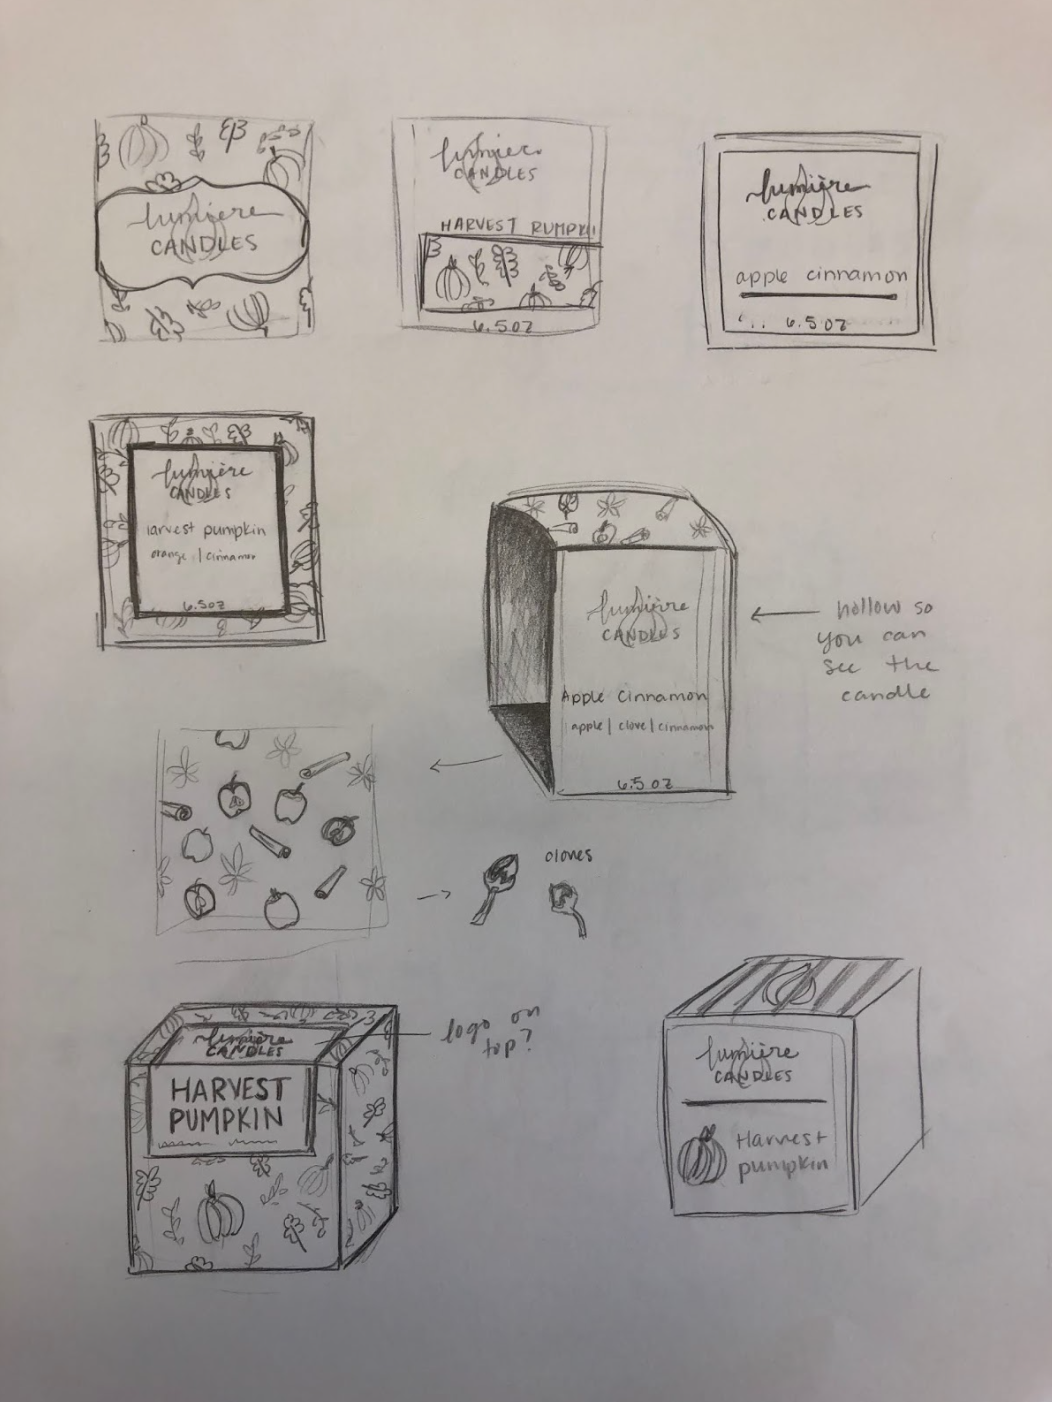 lumière
CANDLES
lumière
CANDLES
HARVEST PUMPKI
6.5oz
lumière
CANDLES
apple cinnamon
6.5oz
lumière
CANDLES
harvest pumpkin
orange | cinnamon
6.5oz
lumière
CANDLES
Apple Cinnamon
apple | clove | cinnamon
6.5oz
hollow so
you can
see the
candle
cloves
lumière
CANDLES
HARVEST
PUMPKIN
logo on
top?
lumière
CANDLES
Harvest
pumpkin